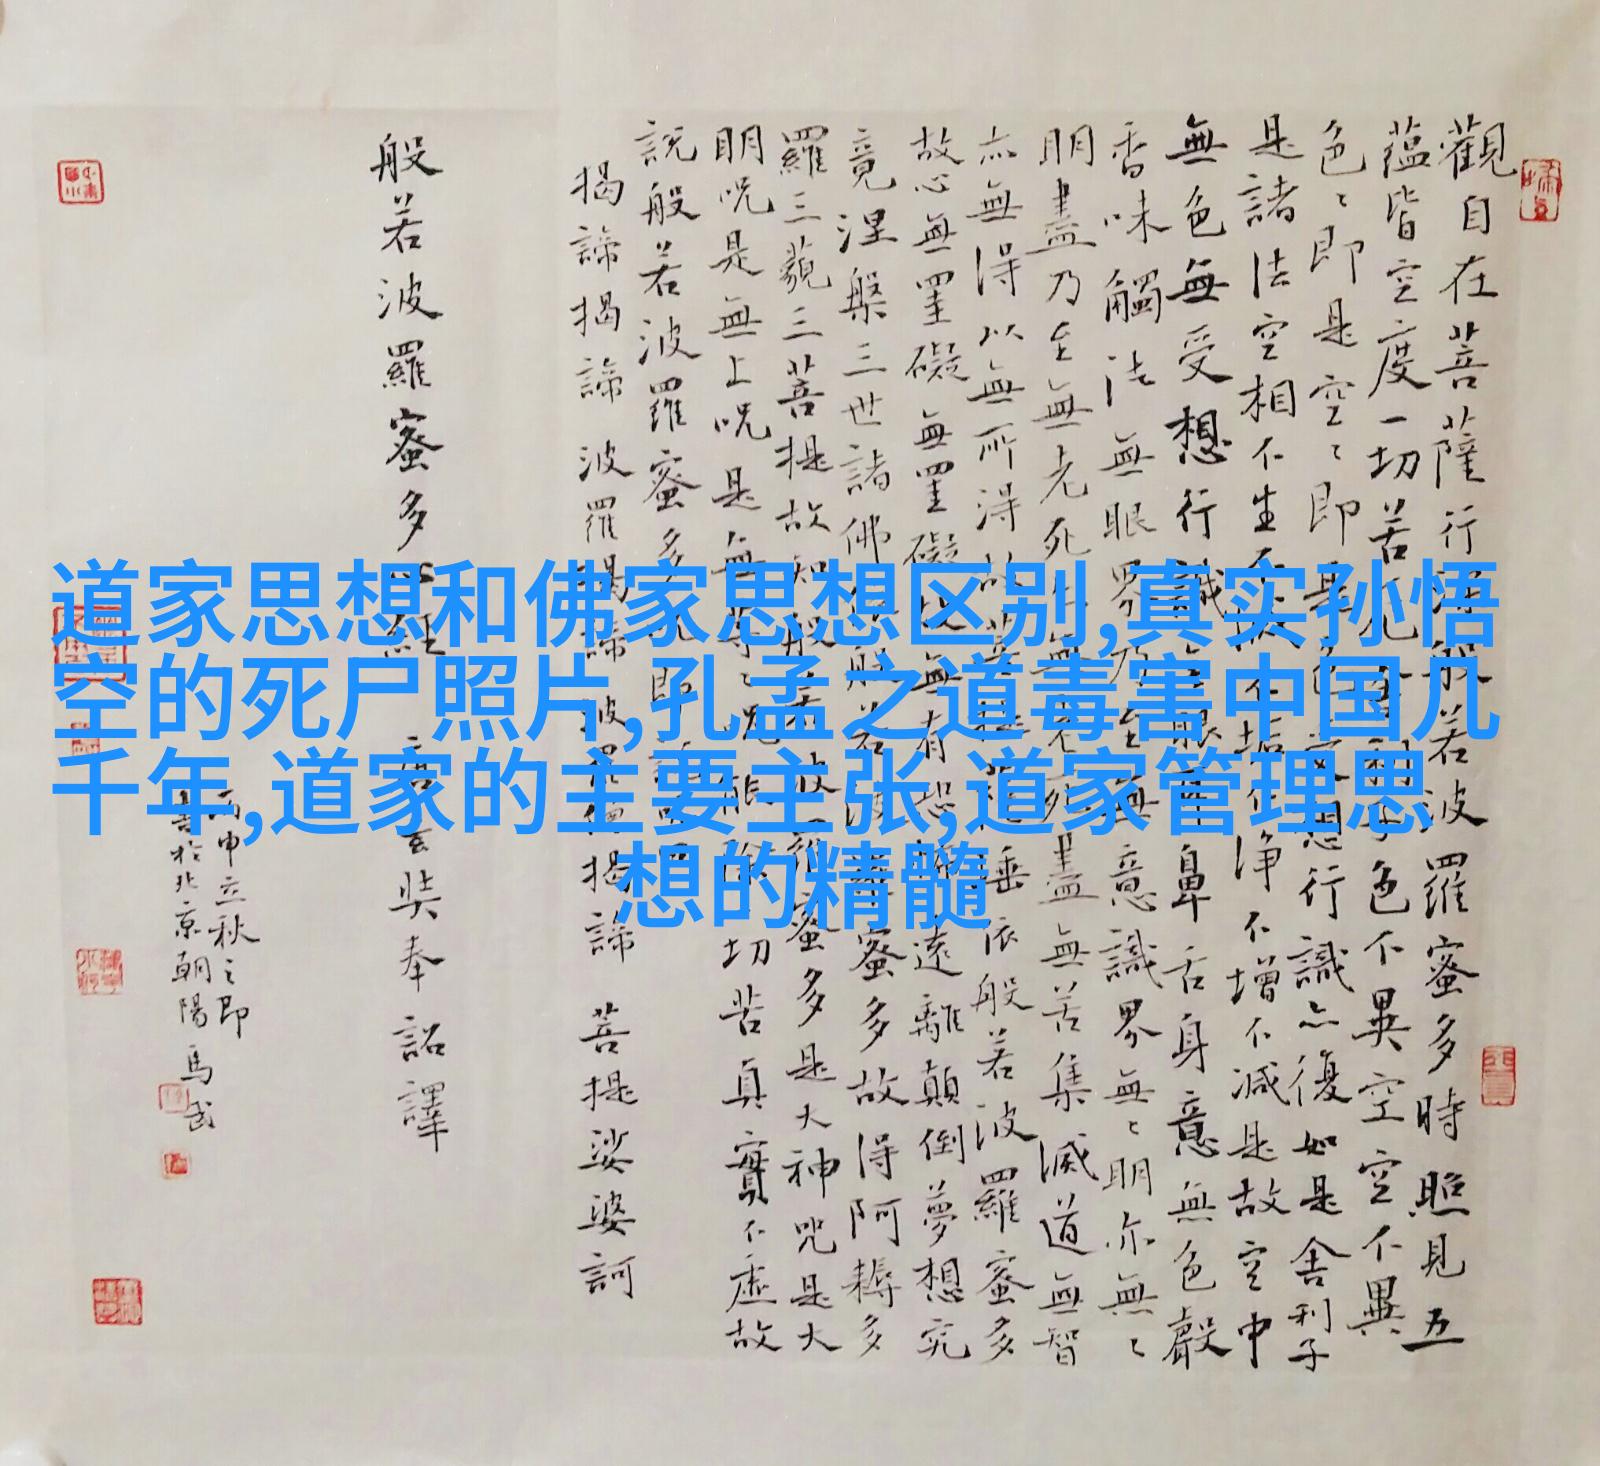 道家思想和佛家思想区别,真实孙悟
空的死尸照片,孔孟之道毒害中国几
千年,道家的主要主张,道家管理思
想的精髓
觀自在菩薩行深般若波羅蜜多時照見五
蘊皆空度一切苦厄舍利子色不異空空不異
色〻即是空〻即是色受想行識亦復如是舍利子
是諸法空相不生不滅不垢不淨不增不減是故空中
無色無受想行識無眼耳鼻舌身意無色聲
香味觸法無眼界乃至無意識界無〻明亦無〻
明盡乃至無老死亦無老死盡無苦集滅道無智
亦無得以無所得故菩提薩埵依般若波羅蜜多
故心無罣礙無罣礙故無有恐怖遠離顛倒夢想究
竟涅槃三世諸佛依般若波羅蜜多故得阿耨多
羅三藐三菩提故知般若波羅蜜多是大神咒是大
明咒是無上咒是無等〻咒能除一切苦真實不虛故
說般若波羅蜜多咒即說咒曰
揭諦揭諦 波羅揭諦 波羅僧揭諦 菩提娑婆訶
般若波羅蜜多心經 唐玄奘奉詔譯
丙申立秋之即
書於北京朝陽 馬武